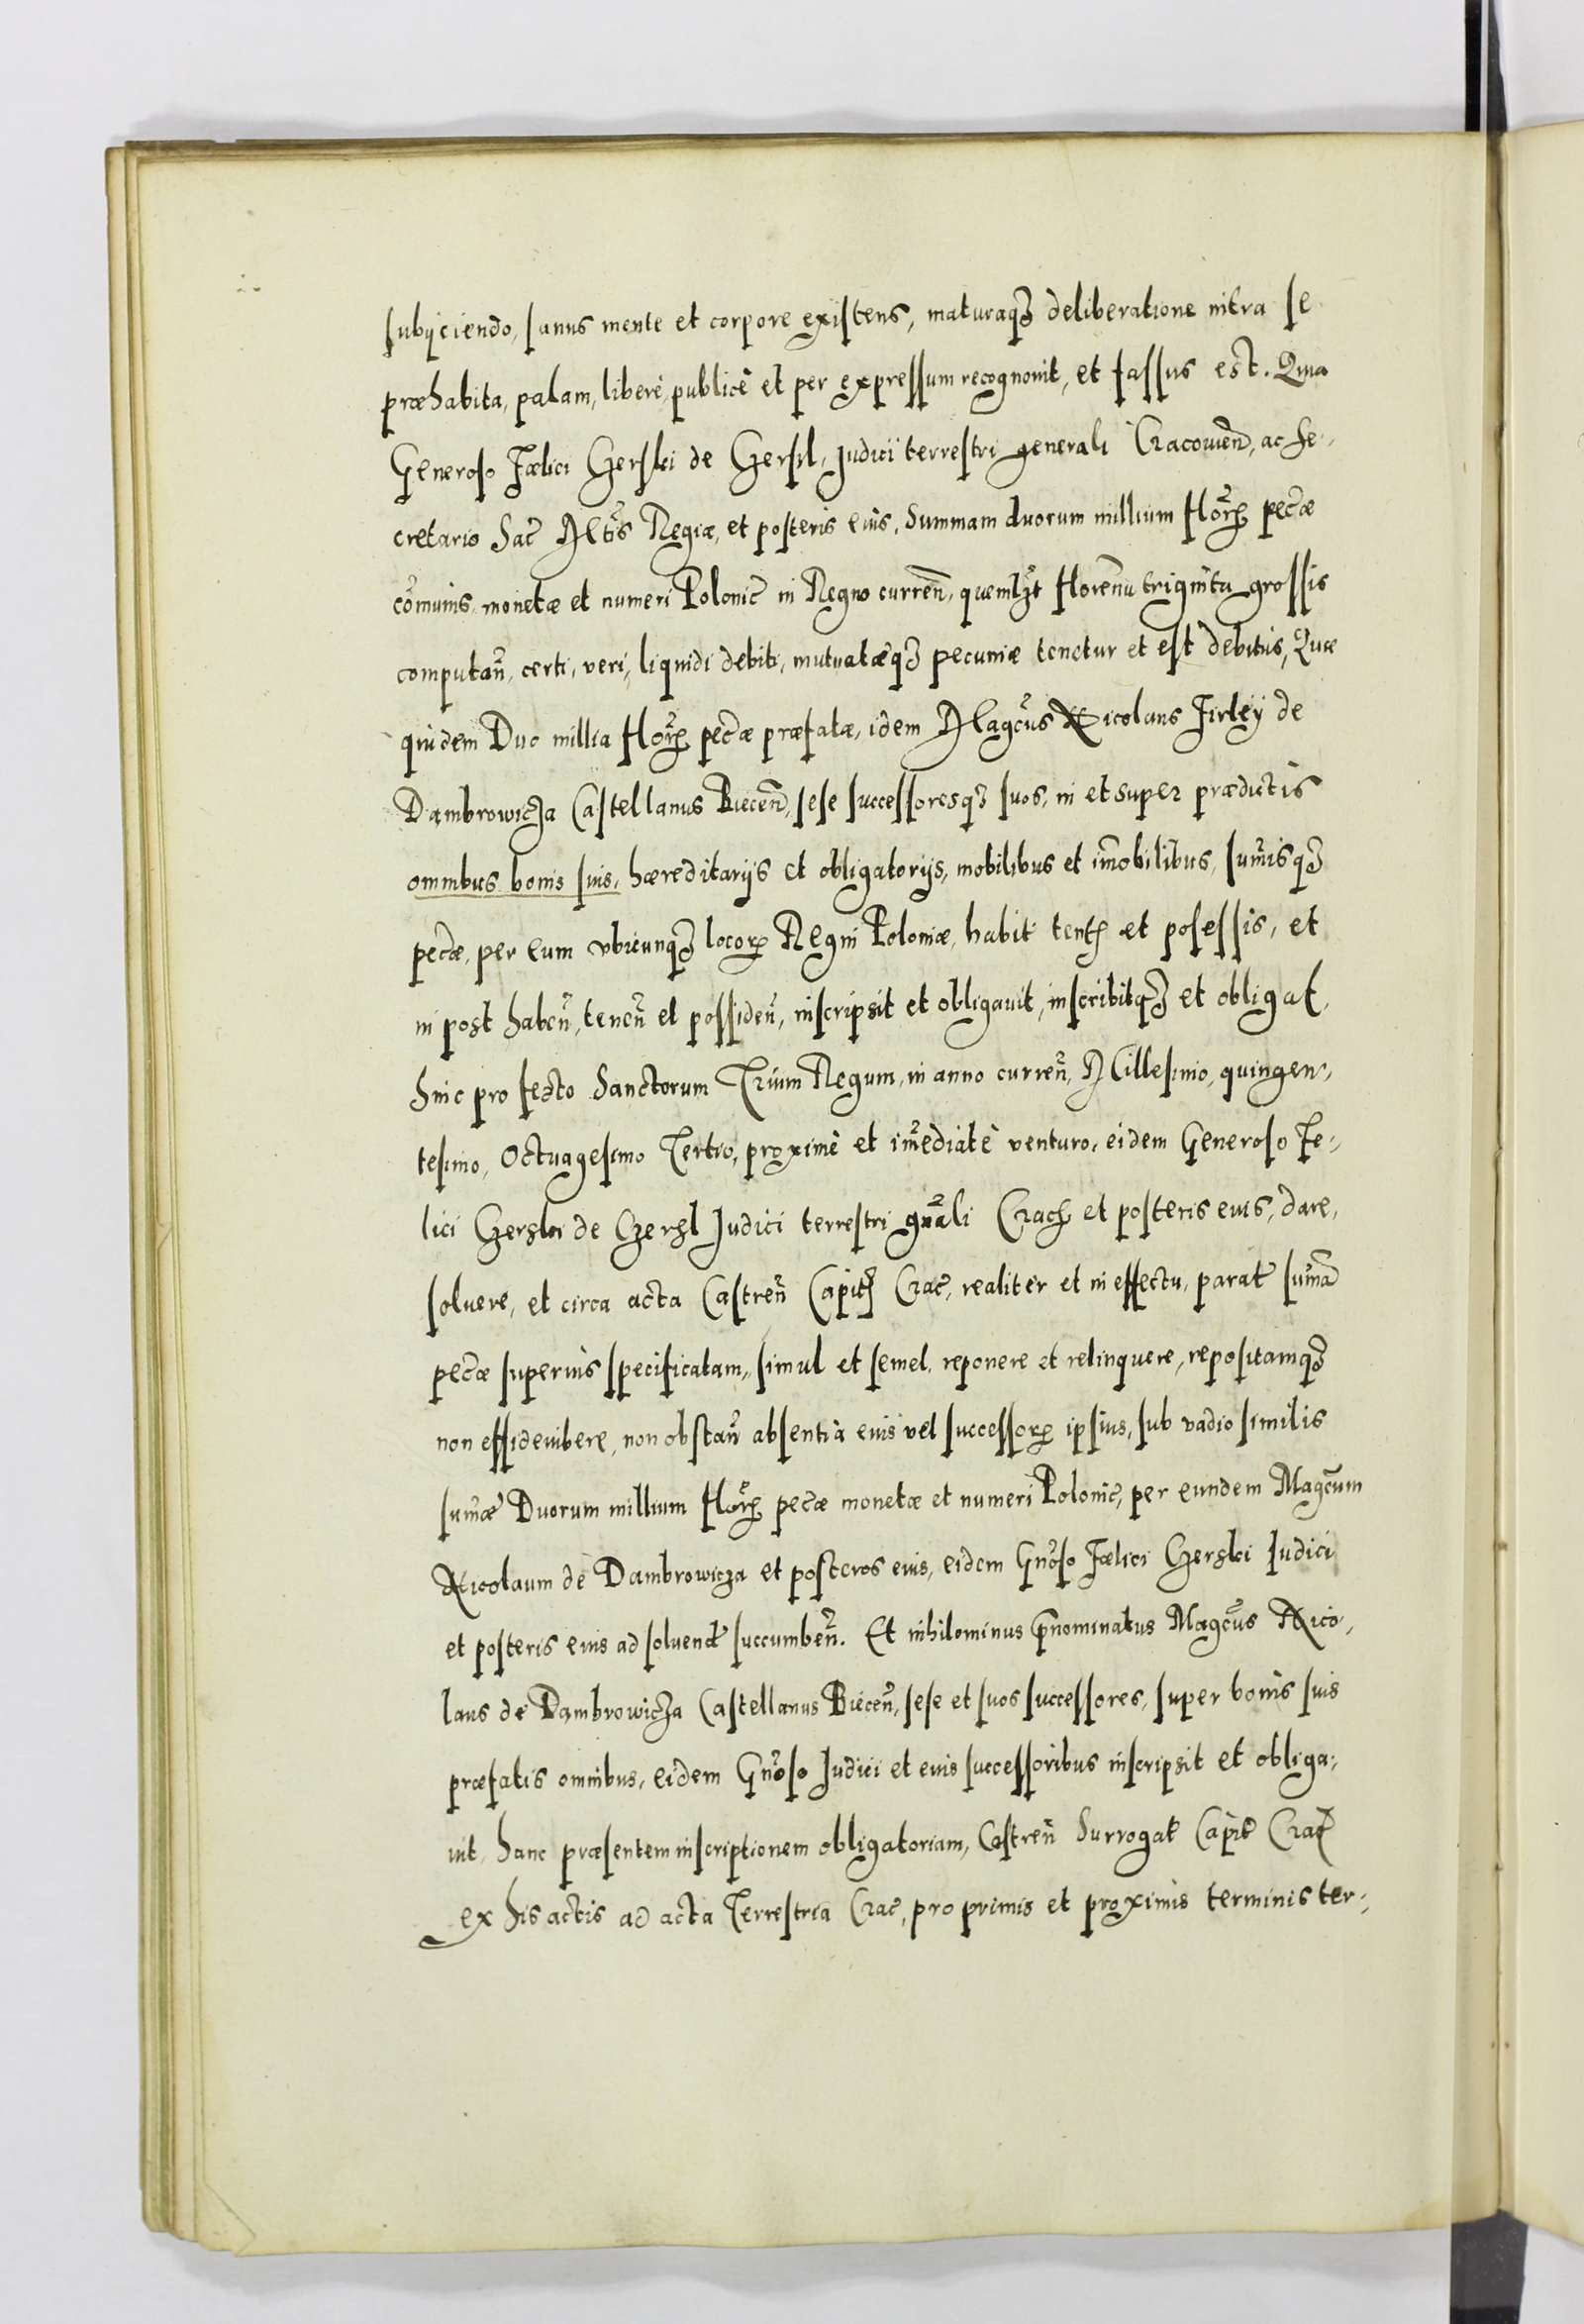 subijciendo, sanus mente et corpore existens, maturaq₃ deliberatione intra se
præhabita, palam, liberè, publicè et per expressum recognouit, et fassus est. Quia
Generoso Fælici Czerski de Czersk, Judici terrestri generali Cracouien̄, ac Se-
cretario Sac̄ Mtis Regiæ, et posteris eius, Summam duorum millium florꝝ pec̄æ
cōmunis, monetæ et numeri Polonic̄ in Regno curren̄, quemlꝫt florenū triginta grossis
computan̄, certi, veri, liquidi debiti, mutuatæq₃ pecuniæ tenetur et est debitus, Quæ
quidem Duo millia florꝝ pec̄æ præfatæ, idem Magcūs Nicolaus Firley de
Dambrowicza Castellanus Biecen̄, sese successoresq₃ suos, in et super prædictis
omnibus bonis suis, hæreditarijs et obligatorijs, mobilibus et im̄obilibus, sum̄isq₃
pec̄æ, per eum vbicunq₃ locorꝝ Regni Poloniæ, habit tent et posessis, et
in post haben̄, tenen̄ et possiden̄, inscripsit et obligauit, inscribitq₃ et obligat,
hinc pro festo Sanctorum Trium Regum, in anno curren̄, Millesimo, quingen-
tesimo, Octuagesimo Tertio, proximè et im̄ediatè venturo, eidem Generoso Fe-
lici Czerski de Czersk Judici terrestri gn̄ali Crac et posteris eius, dare,
soluere, et circa acta Castren̄ Capit Crac̄, realiter et in effectu, parat̄ sum̄ā
pec̄æ superius specificatam, simul et semel, reponere et relinquere, repositamq₃
non effideiubere, non obstan̄ absentia eius vel successorꝝ ipsius, sub vadio similis
sum̄æ Duorum millium florꝝ pec̄æ monetæ et numeri Polonic̄, per eundem Magcūm
Nicolaum de Dambrowicza et posteros eius, eidem Gn̄oso Fælici Czerski Judici
et posteris eius ad soluend̄ succumben̄. Et nihilominus p̄nominatus Magcūs Nico-
laus de Dambrowicza Castellanus Biecen̄, sese et suos successores, super bonis suis
præfatis omnibus, eidem Gn̄oso Judici et eius successoribus inscripsit et obliga-
uit, hanc præsentem inscriptionem obligatoriam, Castren̄ Surrogat̄ Capit̄ Crac
ex his actis ad acta Terrestria Crac̄, pro primis et proximis terminis ter-